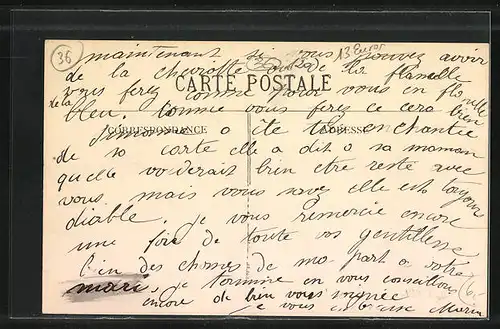 36
13 Euros
maintenant si vous pouvez avoir
de la cheviotte ou de la flanelle
CARTE POSTALE
vous ferez comme pour vous en flanelle
de la
bleu. Comme vous ferez ce cera bien
CORRESPONDANCE
ADRESSE
Simone a ète tres enchantie
de sa carte elle a dit a sa maman
quelle voiderait bien etre reste avec
vous mais vous savez elle est toujours
diable. je vous remercie encore
une fois de toute vos gentillesse
bien des choses de ma part a votre
mari, je termine en vous
encore de bien vous
je vous embrasse Marie